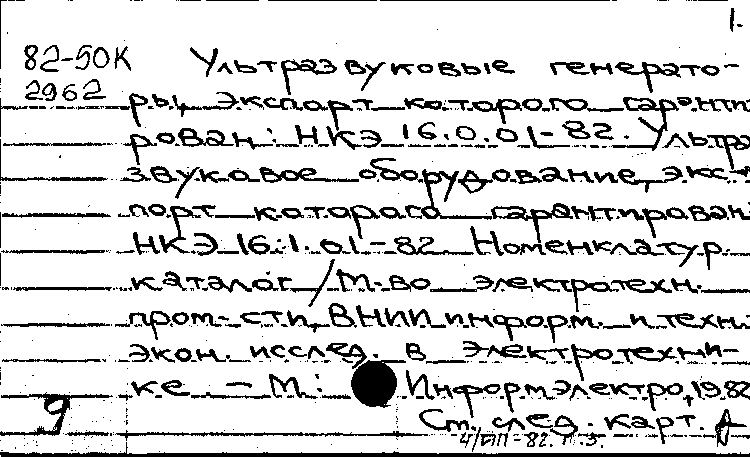 1.
82-50К Ультразвуковые генерато-
2962 ры, экспорт которого гаранти
рован: НКЭ 16.0.01-82. Ультра
звуковое оборудование, экс-
порт которого гарантирован
НКЭ 16.1.01-82 Номенклатур.
каталог/М-во электротехн.
пром-сти, ВНИИ информ. и техн.
экон. исслед. в электротехни-
ке. - М.: Информэлектро, 1982
9 См. след. карт.